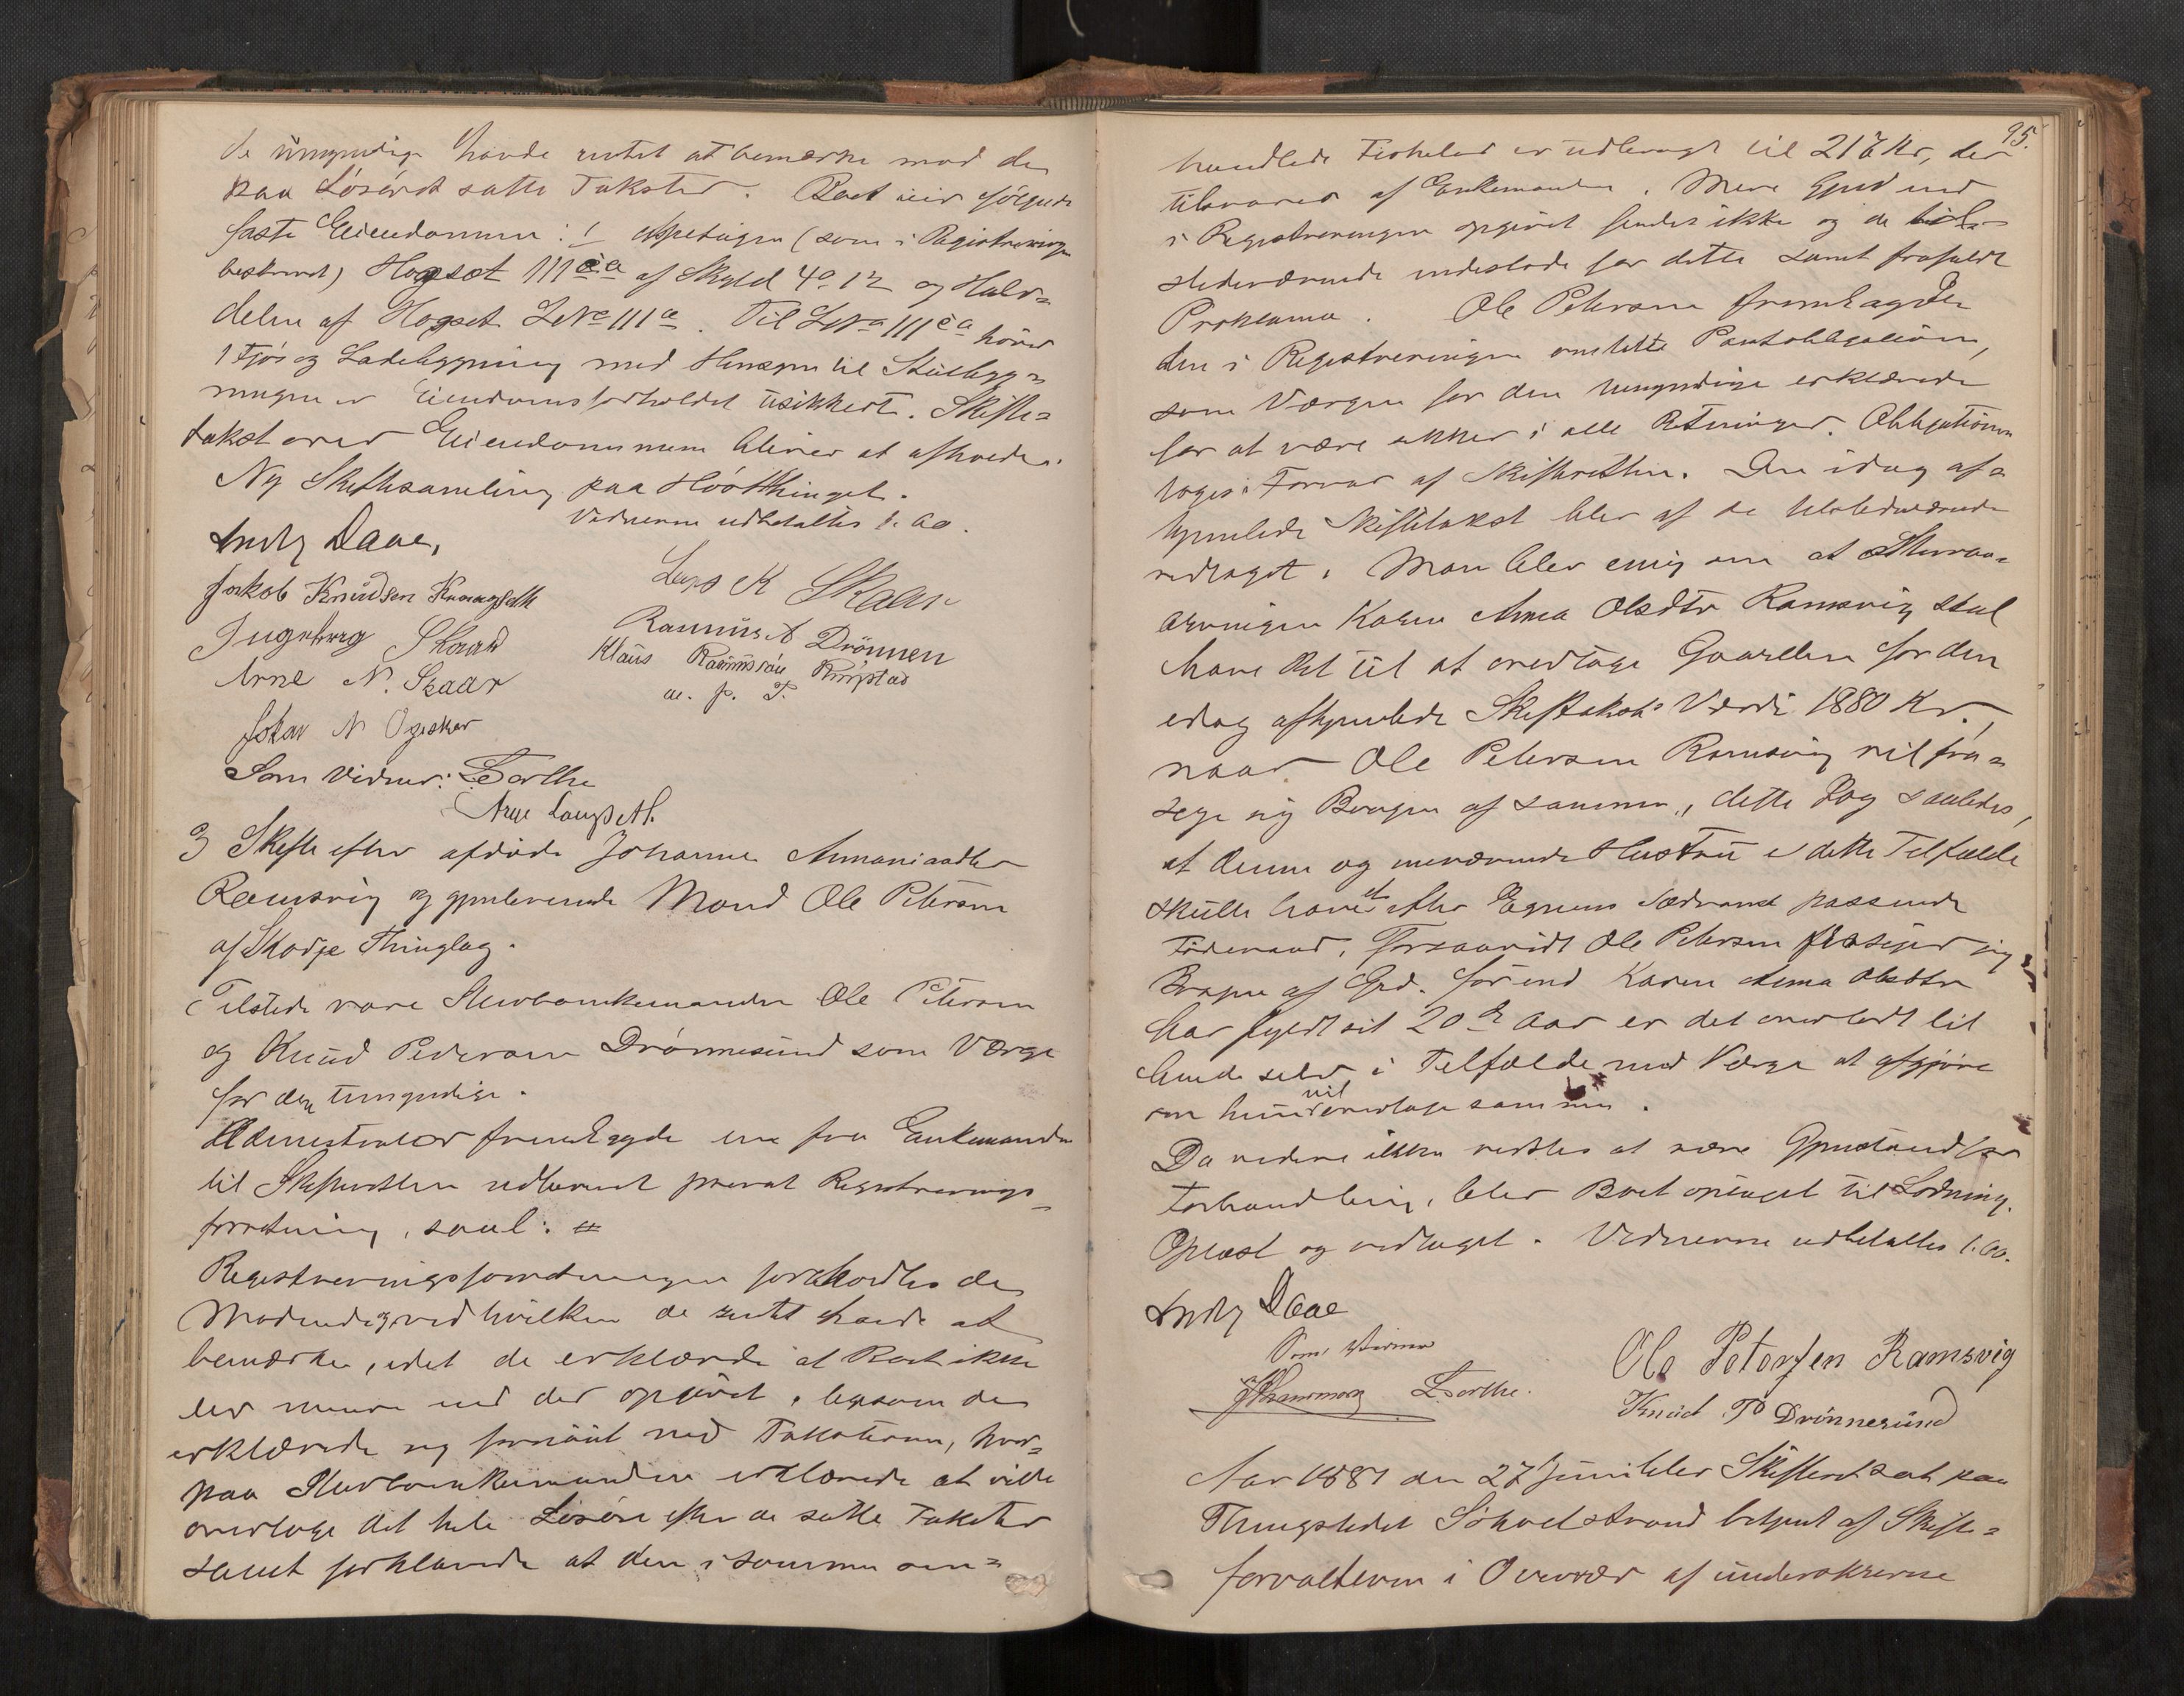 de umyndige havde intet at bemærke mod de
paa Løsøret satte Takster. Boet eier følgende
faste Eiendomme: 1 (som i Registreringen
beskrevet) Hogset 111 af Skyld 4 12 og Halv=
delen af Hogset LNo 111a. Til LNo 111 hører
1 Fjøs og Ladebygning med Hensyn til Stuebyg=
ningen er Eiendomsforholdet usikkert. Skifte=
takst over Eiendommene bliver at afholde.
Ny Skiftesamling paa Høstthinget.
Vidnerne udbetaltes 1.60.
Daae,
Jakob Knudsen
Lars K Skaar
Ingeborg Skaar
Rasmus A Drønnen
Arne N. Skaar
Klaus Rasmussen
m. p. P.
Johan N
Som Vidner: Lerthe
Arne Langseth
3 Skifte efter afdøde Johanne Ananiasdtr
Ramsvig og gjenlevende Mand Ole Petersen
af Skodje Thinglag.
Tilstede vare Stervboenkemanden Ole Petersen
og Knud Pedersen Drønnesund som Værge
for den umyndige.
Administrator fremlagde en fra Enkemanden
til Skifteretten udleveret privat Registrerings=
forretning, saal:
Registreringsforretningen foreholdtes de
Mødende, ved hvilken de intet havde at
bemærke, idet de erklærede at Boet ikke
eier mere end der opgivet, ligesom de
erklærede sig fornøiet med Taksterne, hvor=
paa Stervboenkemanden erklærede at ville
overtage det hele Løsøre efter de satte Takster
samt forklarede at den i samme om=
95.
handlede Fiskelod er udbragt til 217 Kr, der
tilsvares af Enkemanden. Mere Gjeld end
i Registreringen opgivet findes ikke og de til=
stedeværende indestode for dette samt frafaldt
Proklama. Ole Petersen fremlagde
den i Registreringen omtalte Pantobligation,
som Værgen for den umyndige erklærede
for at være sikker i alle Retninger. Obligationen
toges i Forvar af Skifteretten. Den idag af=
hjemlede Skiftetakst blev af de tilstedeværende
vedtaget. Man blev enig om at
arvingen Karen Anna Olsdtr Ramsvig skal
have Ret til at overtage Gaarden for den
idag afhjemlede Skiftetakst's Værdi 1880 Kr.,
naar Ole Petersen Ramsvig vil fra=
sige sig Brugen af samme, dette dog saaledes,
at denne og nuværende Hustru i dette Tilfælde
skulle have et efter Egnens Sædvane passende
Føderaad. Forsaavidt Ole Petersen frasiger sig
Brugen af Grd. førend Karen Anna Olsdtr
har fyldt sit 20de Aar er det overladt til
hende selv i Tilfælde med Værge at afgjøre
om hun vil overtage samme.
Da videre ikke vidstes at være Gjenstand for
Forhandling, blev Boet optaget til Lodning.
Oplæst og vedtaget. Vidnerne udbetaltes 1.60.
Daae
Som Vidner
Lerthe.
Ole Petersen Ramsvig
Knud P Drønnesund
Aar 1881 den 27 Juni blev Skifteret sat paa
Thingstedet Søholdstrand betjent af Skifte=
forvalteren i Overvær af underskrevne